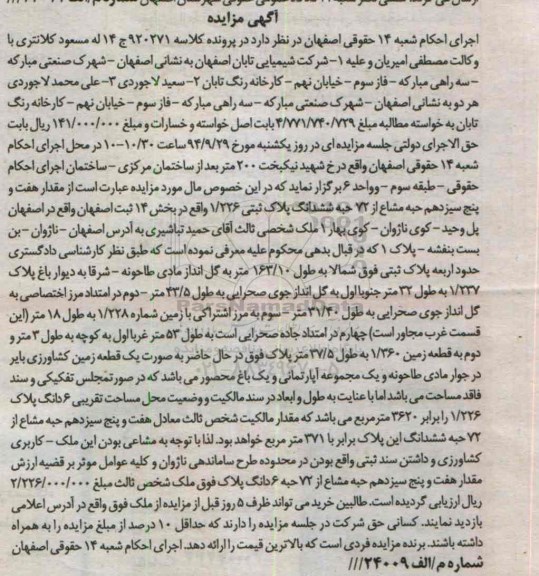 آگهی مزایده
اجرای احکام شعبه ۱۴ حقوقی اصفهان در نظر دارد در پرونده کلاسه ۹۲۰۲۷۱ج ۱۴ له مسعود کلانتری با
وکالت مصطفی امیریان و علیه ۱-شرکت شیمیایی تابان اصفهان به نشانی اصفهان - شهرک صنعتی مبارکه
- سه راهی مبارکه - فاز سوم - خیابان نهم - کارخانه رنگ تابان ۲-سعید لاجوردی ۳-علی محمد لاجوردی
هر دو به نشانی اصفهان - شهرک صنعتی مبارکه - سه راهی مبارکه - فاز سوم - خیابان نهم - کارخانه رنگ
تابان به خواسته مطالبه مبلغ ۴/۷۷۱/۷۴۰/۷۲۹بابت اصل خواسته و خسارات و مبلغ ۱۴۱/۰۰۰/۰۰۰ ریال بابت
حق الاجرای دولتی جلسه مزایده ای در روز یکشنبه مورخ ۹۴/۹/۲۹ ساعت ۱۰/۳۰-۱۰ در محل اجرای احکام
شعبه ۱۴ حقوقی اصفهان واقع درخ شهید نیکبخت ۲۰۰ متر بعد از ساختمان مرکزی - ساختمان اجرای احکام
حقوقی - طبقه سوم - وواحد ۶ برگزار نماید که در این خصوص مال مورد مزایده عبارت است از مقدار هفت و
پنج سیزدهم حبه مشاع از ۷۲ حبه ششدانگ پلاک ثبتی ۱/۲۲۶ واقع در بخش ۱۴ ثبت اصفهان واقع در اصفهان
پل وحید - کوی ناژوان - کوی بهار ۱ ملک شخصی ثالث آقای حمید تباشیری به آدرس اصفهان - ناژوان - بن
بست بنفشه - پلاک ۱ که در قبال بدهی محکوم علیه معرفی نموده است که طبق نظر کارشناسی دادگستری
حدود اربعه پلاک ثبتی فوق شمالا به طول ۱۶۳/۱۰ متر به گل انداز مادی طاحونه - شرقا به دیوار باغ پلاک
۱/۲۳۷ به طول ۳۲ متر جنوبا اول به گل انداز جوی صحرایی به طول ۴۳/۵ متر - دوم در امتداد مرز اختصاصی به
گل انداز جوی صحرایی به طول ۳۱/۴۰ متر - سوم به مرز اشتراکی با زمین شماره ۱/۲۲۸ به طول ۱۸ متر (این
قسمت غرب مجاور است) چهارم در امتداد جاده صحرایی است به طول ۵۳ متر غربا اول به کوچه به طول ۳ متر و
دوم به قطعه زمین ۱/۳۶۰ به طول ۳۷/۵ متر پلاک فوق در حال حاضر به صورت یک قطعه زمین کشاورزی بایر
در جوار مادی طاحونه و یک مجموعه آپارتمانی و یک باغ محصور می باشد که در صورتمجلس تفکیکی و سند
فاقد مساحت می باشد اما با عنایت به طول و ابعاد در سند مالکیت و وضعیت محل مساحت تقریبی ۶دانگ پلاک
۱/۲۲۶ را برابر ۳۶۲۰ مترمربع می باشد که مقدار مالکیت شخص ثالث معادل هفت و پنج سیزدهم حبه مشاع از
۷۲ حبه ششدانگ این پلاک برابر با ۳۷۱ متر مربع خواهد بود. لذا با توجه به مشاعی بودن این ملک - کاربری
کشاورزی و داشتن سند ثبتی واقع بودن در محدوده طرح ساماندهی ناژوان و کلیه عوامل موثر بر قضیه ارزش
مقدار هفت و پنج سیزدهم حبه مشاع از ۷۲ حبه ۶دانگ پلاک فوق ملک شخص ثالث مبلغ ۲/۲۲۶/۰۰۰/۰۰۰
ریال ارزیابی گردیده است. طالبین خرید می تواند ظرف ۵ روز قبل از مزایده از ملک فوق واقع در آدرس اعلامی
بازدید نمایند. کسانی حق شرکت در جلسه مزایده را دارند که حداقل ۱۰ درصد از مبلغ مزایده را به همراه
داشته باشند. برنده مزایده فردی است که بالاترین قیمت را ارائه دهد. اجرای احکام شعبه ۱۴ حقوقی اصفهان
شماره م/الف ۲۴۰۰۹///